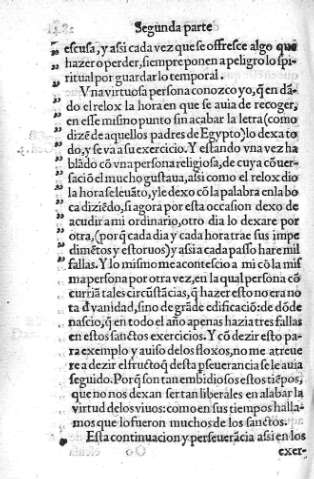 Segunda parte
escusa, y assi cada vez que se offresce algo que
hazer o perder, siempre ponen a peligro lo spi-
ritual por guardar lo temporal.
Vna virtuosa persona conozco yo, q̃ en dã-
do el relox la hora en que se auia de recoger,
en esse mismo punto sin acabar la letra (como
dizẽ de aquellos padres de Egypto) lo dexa to
do, y se va a su exercicio. Y estando vna vez ha
blãdo cõ vna persona religiosa, de cuya cõuer-
saciõ el mucho gustaua, assi como el relox dio
la hora se leuãto, y le dexo cõ la palabra en la bo
ca diziẽdo, si agora por esta occasion dexo de
acudir a mi ordinario, otro dia lo dexare por
otra, (por q̃ cada dia y cada hora trae sus impe
dimẽtos y estoruos) y assi a cada passo hare mil
fallas. Y lo mismo me acontescio a mi cõ la mis
ma persona por otra vez, en la qual personia cõ
curriã tales circũstãcias, q̃ hazer esto no era no
ta đ vanidad, sino de grãde edificaciõ: de dõde
nascio, q̃ en todo el año apenas hazia tres fallas
en estos sanctos exercicios. Y cõ dezir esto pa-
ra exemplo y auiso de los floxos, no me atreue
re a dezir el fructo q̃ desta ꝑseuerãcia se le auia
seguido. Por q̃ son tan embidiosos estos tiẽpos,
que no nos dexan ser tan liberales en alabar la
virtud de los viuos: como en sus tiempos halla-
mos que lo fueron muchos de los sanctos.
Esta continuacion y perseuerãcia assi en los
Oo exer-